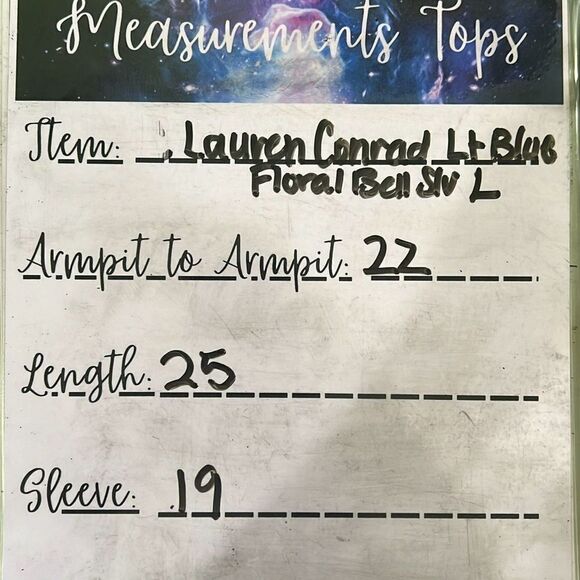 Measurements Tops
Item: Lauren Conrad Lt Blue
Floral Bell Slv L
Armpit to Armpit: 22
Length: 25
Sleeve: 19